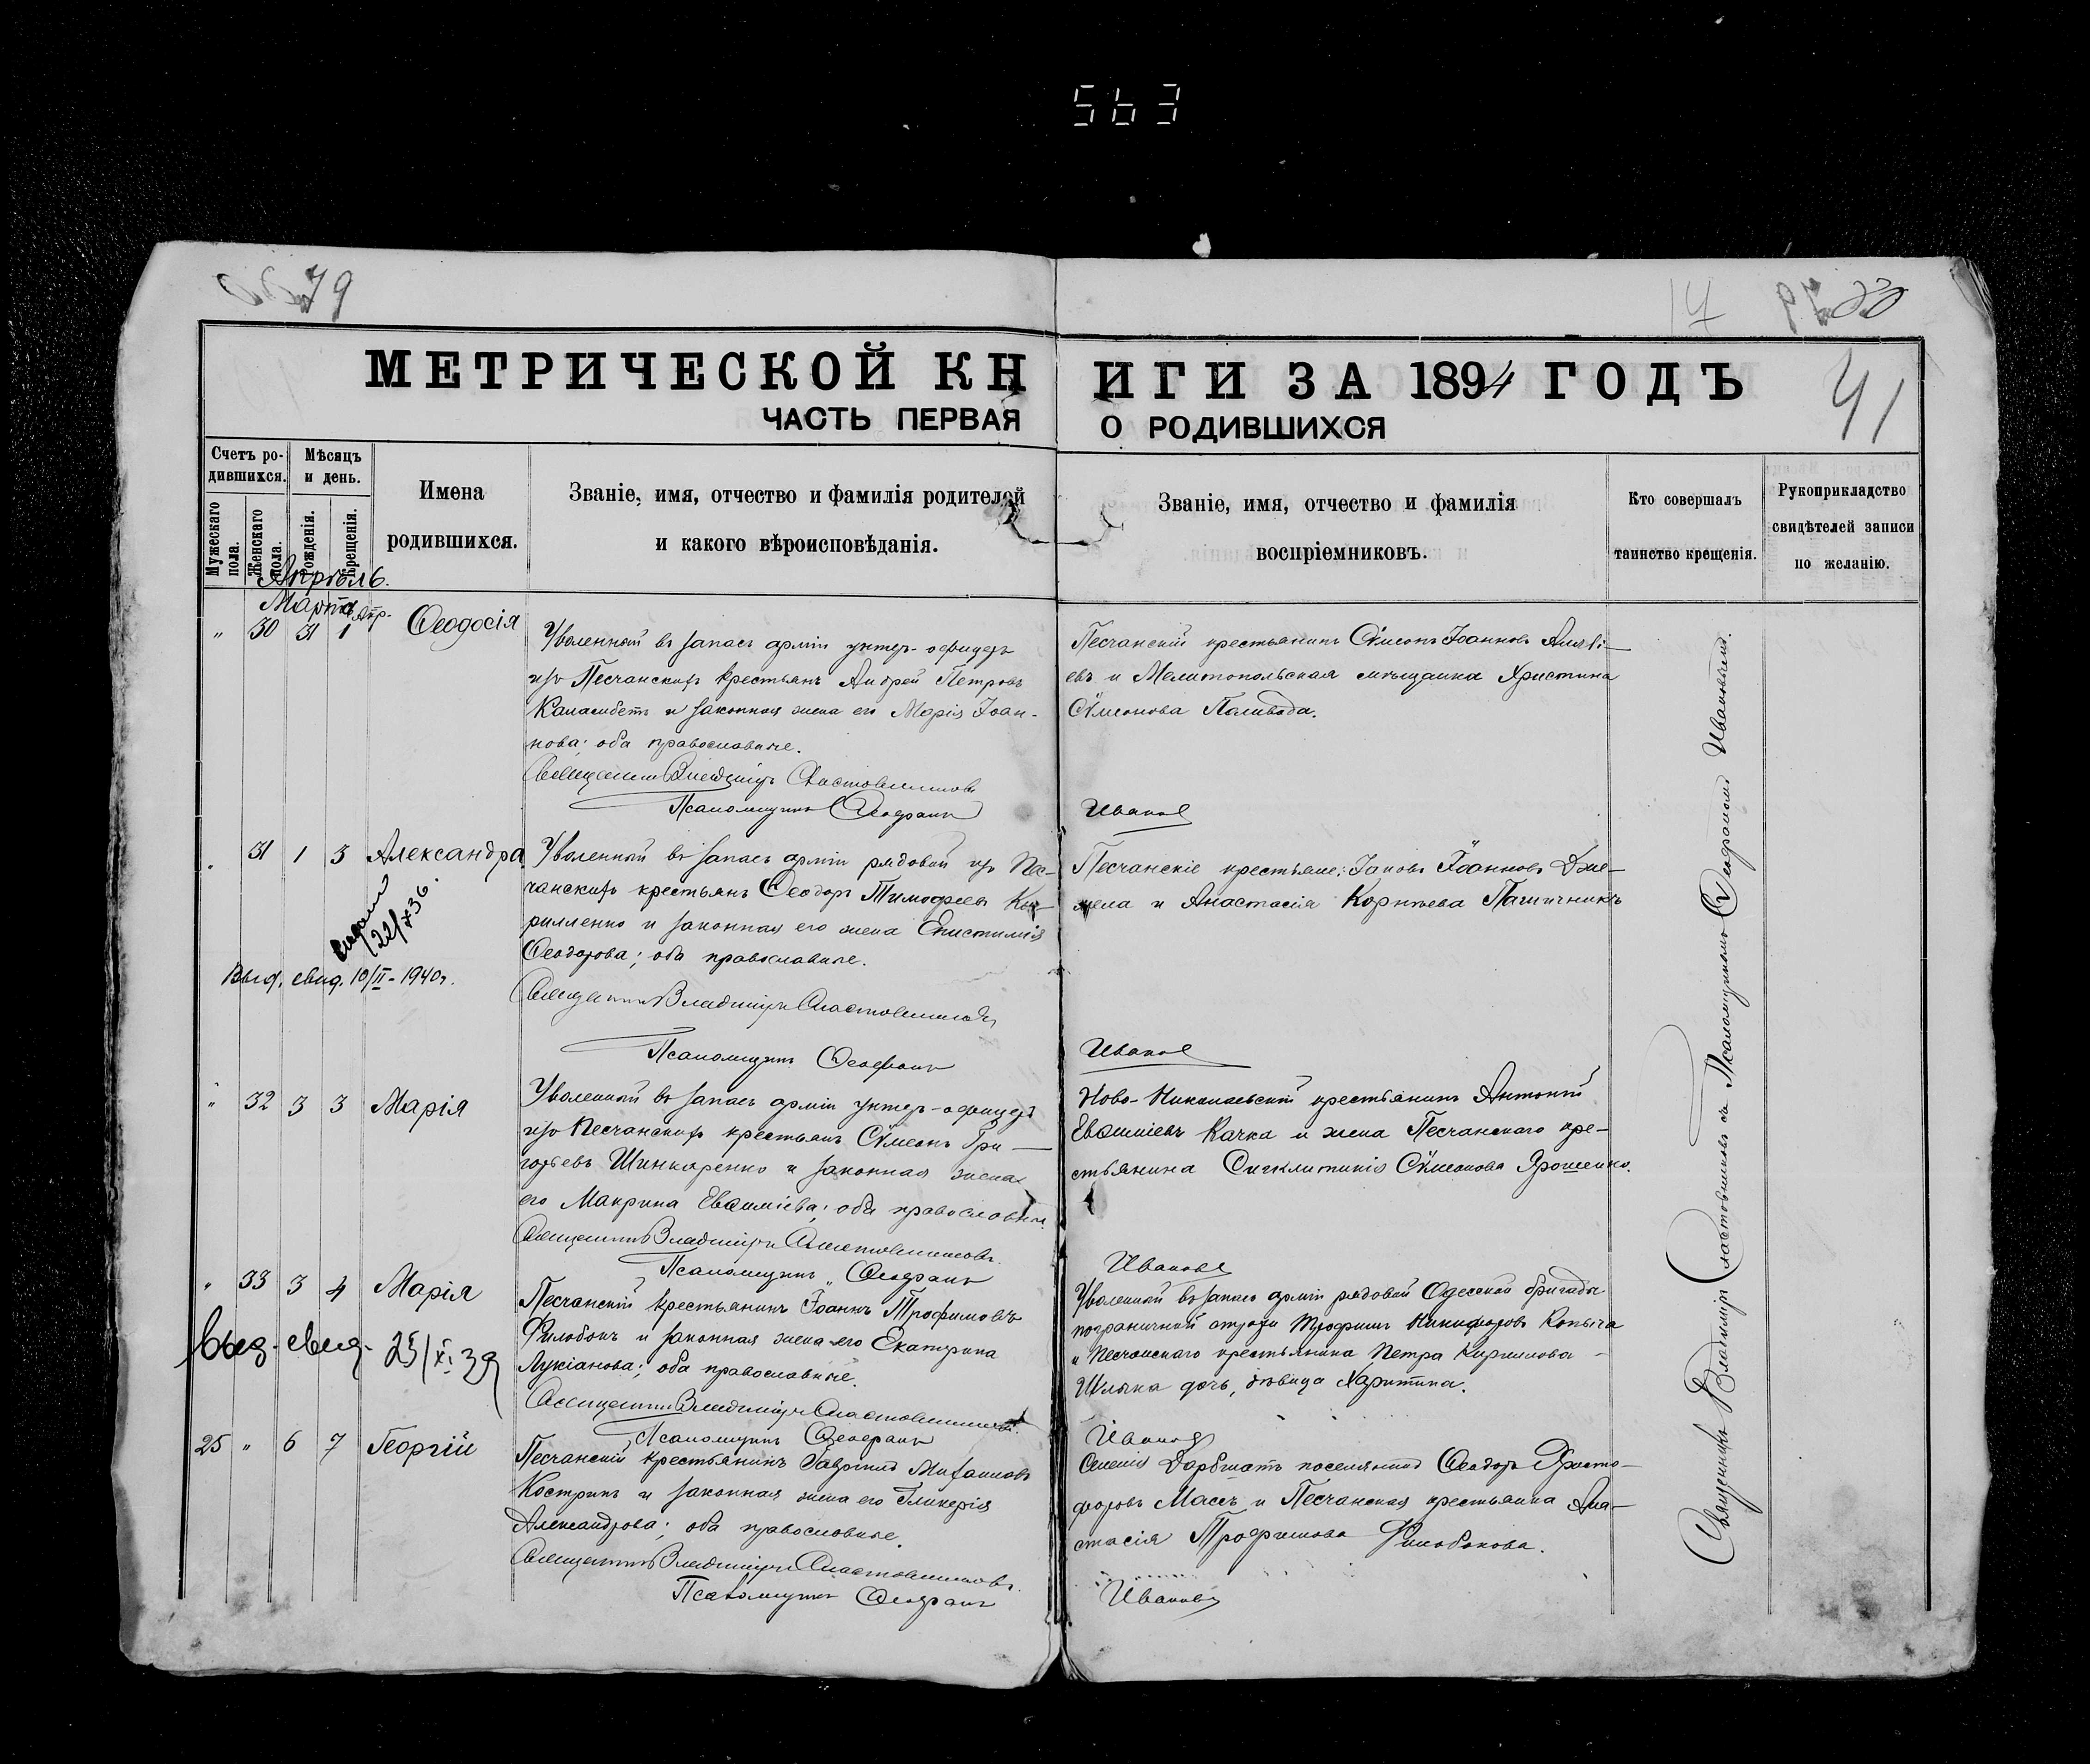 563
79
17
41
МЕТРИЧЕСКОЙ КНИГИ ЗА 1894 ГОДЪ
ЧАСТЬ ПЕРВАЯ О РОДИВШИХСЯ
Счетъ родившихся.
Мужескаго пола.
Женскаго пола.
Мѣсяцъ и день.
Рожденія.
Крещенія.
Имена родившихся.
Званіе, имя, отчество и фамилія родителей
и какого вѣроисповѣданія.
Званіе, имя, отчество и фамилія
воспріемниковъ.
Кто совершалъ
таинство крещенія.
Рукоприкладство
свидѣтелей записи
по желанію.
Апрѣль.
Марта Апр.
" 30 31 1 Ѳеодосія
Уволенный въ запасъ арміи унтер-офицеръ
изъ Песчанскихъ крестьянъ Андрей Петровъ
Каламбетъ и законная жена его Марія Іоан-
нова; оба православные.
Священникъ Владиміръ Сластовниковъ
Псаломщикъ Ѳеофанъ Ивановъ
Песчанскій крестьянинъ Сѵмеонъ Іоанновъ
евъ и Мелитопольская мѣщанка Христина
Сѵмеонова Паливода.
" 31 1 3 Александра
Уволенный въ запасъ арміи рядовой изъ Пес-
чанскихъ крестьянъ Ѳеодоръ Тимофеевъ Ки-
рилленко и законная его жена Епистимія
Ѳеодорова; оба православные.
Священникъ Владиміръ Сластовниковъ
Псаломщикъ Ѳеофанъ Ивановъ
Песчанскіе крестьяне: Іаковъ Іоанновъ Дже-
жела и Анастасія Корнѣева Пасичникъ
22/X 36.
Выд. свид. 10/II-1940г.
" 32 3 3 Марія
Уволенный въ запасъ арміи унтер-офицеръ
изъ Песчанскихъ крестьянъ Сѵмеонъ Гри-
горьевъ Шинкаренко и законная жена
его Макрина Евѳиміева; оба православные.
Священникъ Владиміръ Сластовниковъ
Псаломщикъ Ѳеофанъ Ивановъ
Ново-Николаевскій крестьянинъ Антоній
Евѳиміевъ Качка и жена Песчанскаго кре-
стьянина Сигклитикія Сѵмеонова Ярошенко.
" 33 3 4 Марія
Песчанскій крестьянинъ Іоаннъ Трофимовъ
Филобокъ и законная жена его Екатерина
Лукіанова; оба православные.
Священникъ Владиміръ Сластовниковъ
Псаломщикъ Ѳеофанъ Ивановъ
Уволенный въ запасъ арміи рядовой Одесской бригады
пограничной стражи Трофимъ Никифоровъ Копыча
и Песчанскаго крестьянина Петра Кириллова
Шлыка дочь, дѣвица Харитина.
Выд. свид. 25/XI 39
25 " 6 7 Георгій
Песчанскій крестьянинъ Гавріилъ Михаиловъ
Костринъ и законная жена его Гликерія
Александрова; оба православные.
Священникъ Владиміръ Сластовниковъ
Псаломщикъ Ѳеофанъ Ивановъ
Селенія Дармштатъ поселянинъ Ѳеодоръ Христо-
форовъ Массъ и Песчанская крестьянка Ана-
стасія Трофимова Филобокова.
Священникъ Владиміръ Сластовниковъ съ Псаломщикомъ Ѳеофаномъ Ивановымъ.